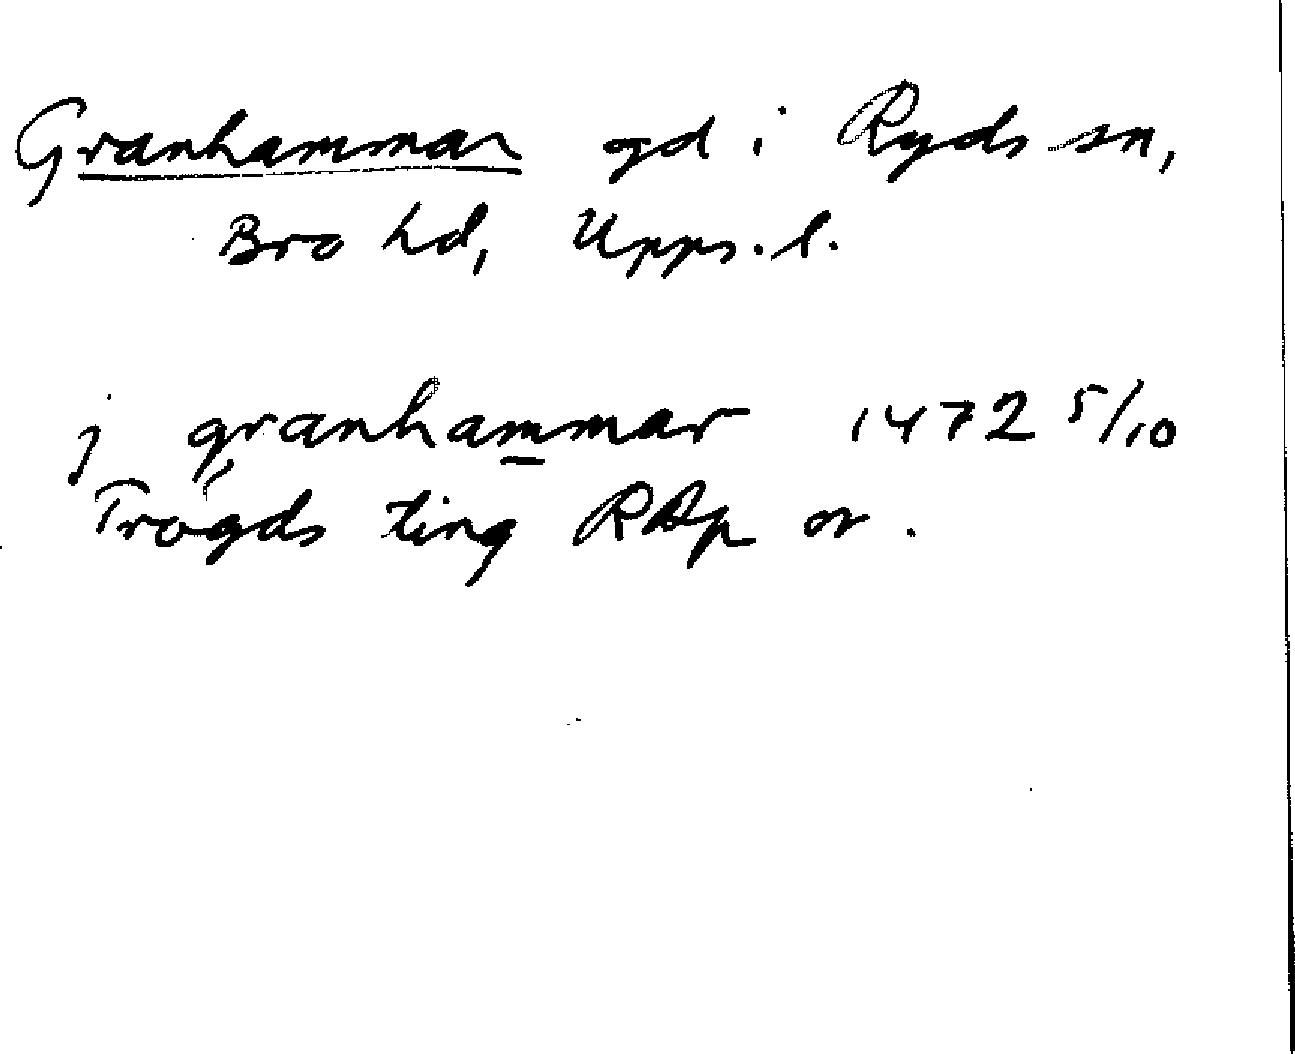 Granhammar gd i Ryds sn,
Bro hd, Upps. l.
j granhammar 1472 5/10
Trögds ting RAp or.